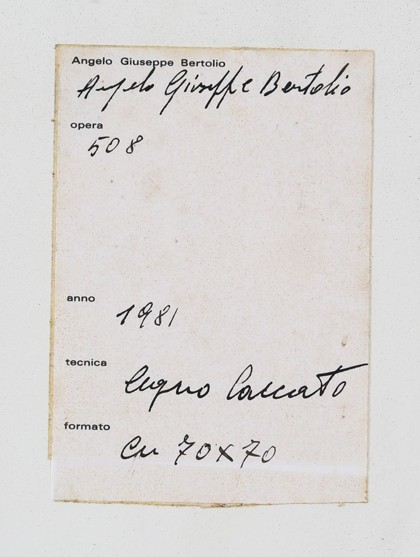 Angelo Giuseppe Bertolio
Angelo Giuseppe Bertolio
opera
508
anno
1981
tecnica
legno laccato
formato
cm 70x70